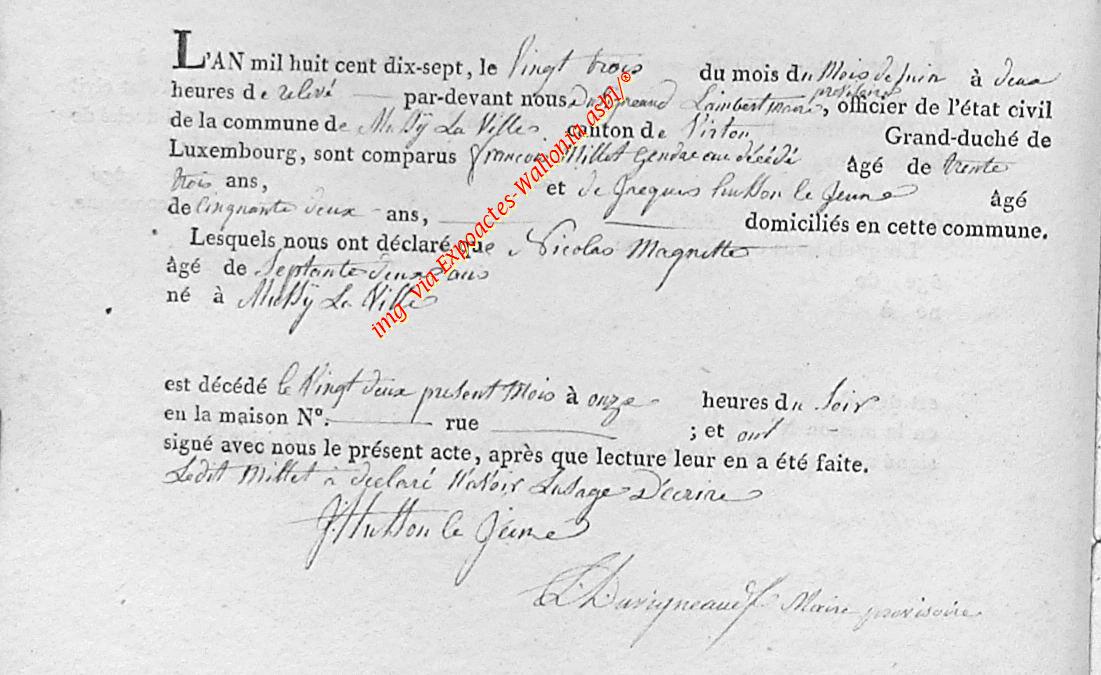 L'AN mil huit cent dix-sept, le Vingt trois du mois du Mois de Juin à deux
heures de relevé par-devant nous Duvigneaud Lambert maire provisoire, officier de l'état civil
de la commune de Mussÿ La Ville, canton de Virton Grand-duché de
Luxembourg, sont comparus François Millet Gendre au décédé âgé de trente
trois ans, et de Jacques husson le Jeune âgé
de Cinquante deux ans, domiciliés en cette commune.
Lesquels nous ont déclaré que Nicolas Magnette
âgé de Septante deux ans
né à Mussÿ La Ville
est décédé le Vingt deux présent Mois à onze heures du Soir
en la maison N°. rue ; et ont
signé avec nous le présent acte, après que lecture leur en a été faite.
Ledit Millet à declaré N'avoir Lusage D'écrire
J. Husson le Jeune
L Duvigneaud Maire provisoire
img via Expoactes-Wallonia.asbl/®